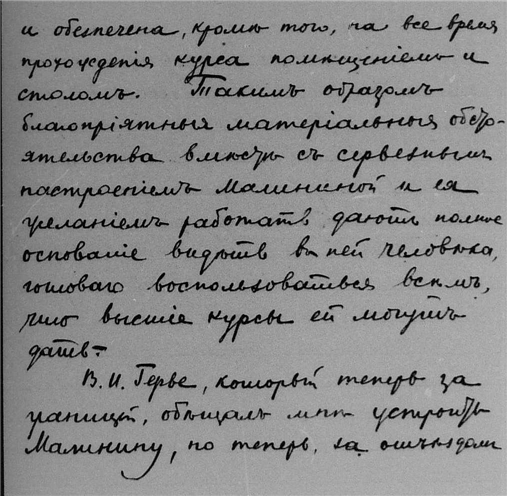 и обезпечена, кромѣ того, на все время
прохожденія курса помѣщеніемъ и
столомъ. Такимъ образомъ
благопріятныя матеріальныя обсто-
ятельства вмѣстѣ съ серьезнымъ
настроеніемъ Малининой и ея
желаніемъ работать даютъ полное
основаніе видѣть въ ней человѣка,
готоваго воспользоваться всѣмъ,
что высшіе курсы ей могутъ
дать.
В. И. Герье, который теперь за
границей, обѣщалъ мнѣ устроить
Малинину, но теперь, за отъѣздомъ